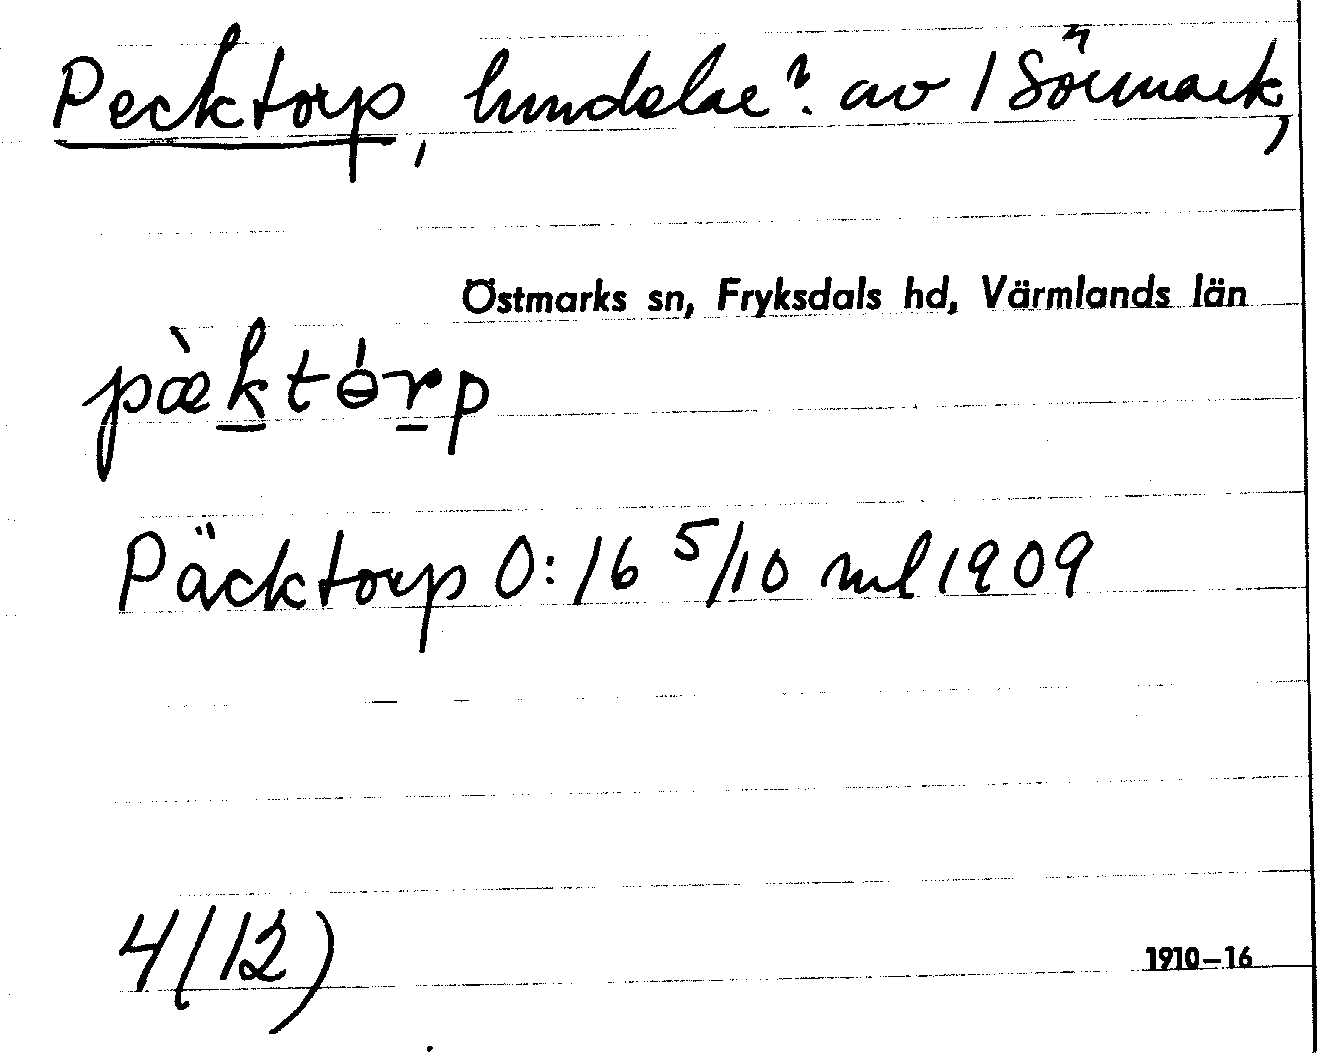 Pecktorp, lundelae? av 1 Sörmark,
Östmarks sn, Fryksdals hd, Värmlands län
pæ̀ktɵ́rp
Päcktorp O:16 5/10 ml 1909
4(12)
1910–16